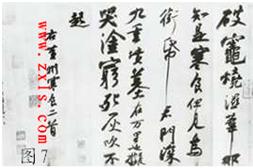 破竈燒濕葦那
知是寒食但見烏
銜帋君門深
九重墳墓在万里也擬
哭塗窮死灰吹不
起
右黃州寒食二首
www.zxls.com
图7